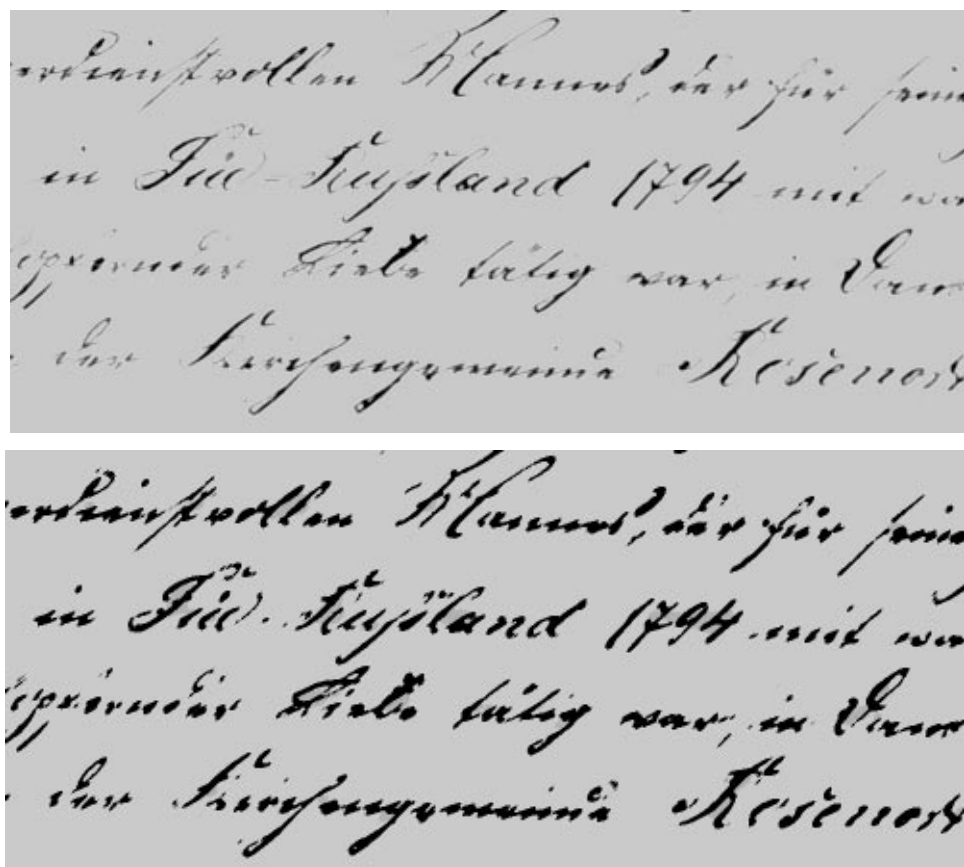 verdienstvollen Mannes, der für seine
in Süd-Rußland 1794 mit
opfernder Liebe tätig war, in
der Kirchengemeinde Rosenort
verdienstvollen Mannes, der für seine
in Süd-Rußland 1794 mit
opfernder Liebe tätig war, in
der Kirchengemeinde Rosenort